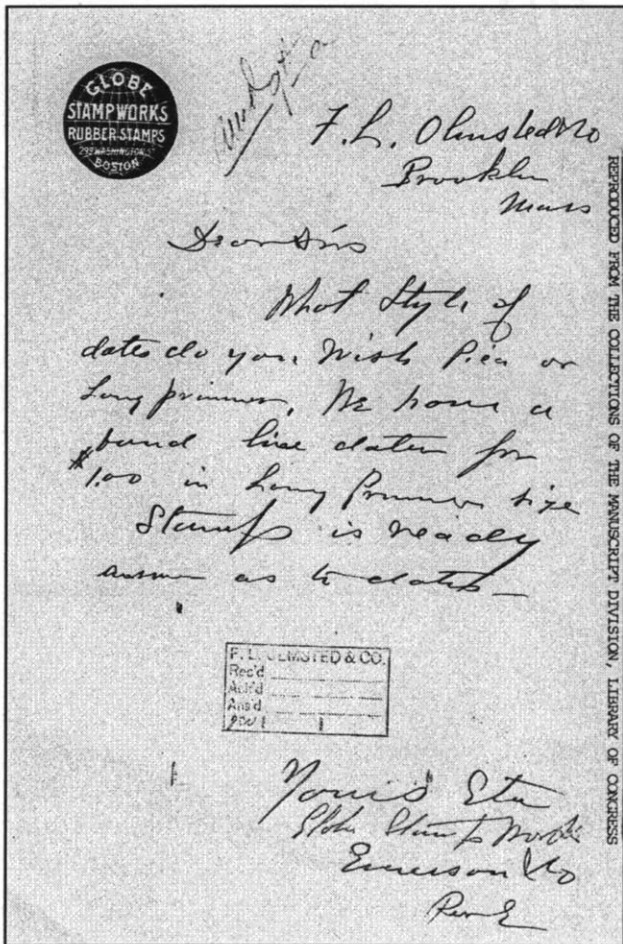 GLOBE
STAMP WORKS
RUBBER STAMPS
BOSTON
F. L. Olmsted & Co
Brooklin
Mass
Dear Sirs
What Style of
dates do you Wish Pica or
Long primer, We have a
band line dater for
$1.00 in Long Primer size
Stamp is ready
answer as to dates
F. L. OLMSTED & CO.
Rec'd
Ack'd
Ans'd
Yours Etc
Globe Stamp Works
Emerson & Co
Per E
REPRODUCED FROM THE COLLECTIONS OF THE MANUSCRIPT DIVISION, LIBRARY OF CONGRESS